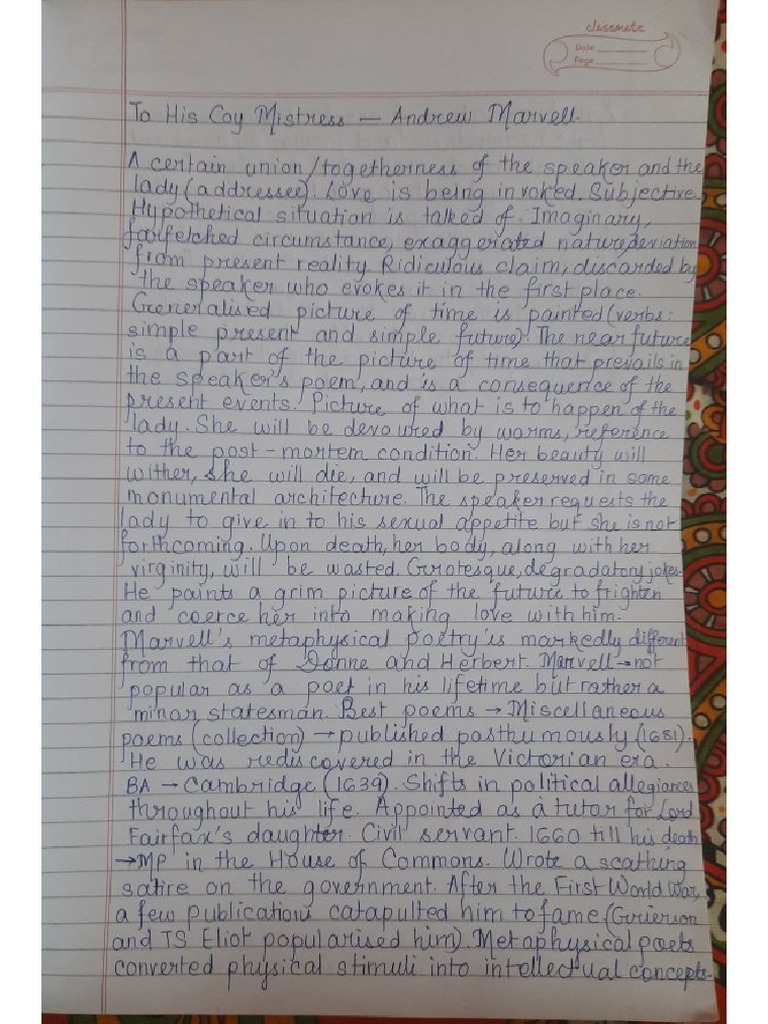 classmate
Date
Page
To His Coy Mistress — Andrew Marvell.
A certain union/togetherness of the speaker and the
lady (addressee). Love is being invoked. Subjective.
Hypothetical situation is talked of. Imaginary,
farfetched circumstance, exaggerated nature, deviation
from present reality. Ridiculous claim, discarded by
the speaker who evokes it in the first place.
Generalised picture of time is painted (verbs:
simple present and simple future). The near future
is a part of the picture of time that prevails in
the speaker's poem, and is a consequence of the
present events. Picture of what is to happen of the
lady. She will be devoured by worms, reference
to the post-mortem condition. Her beauty will
wither, she will die, and will be preserved in some
monumental architecture. The speaker requests the
lady to give in to his sexual appetite but she is not
forthcoming. Upon death, her body, along with her
virginity, will be wasted. Grotesque, degradatory jokes.
He paints a grim picture of the future to frighten
and coerce her into making love with him.
Marvell's metaphysical poetry is markedly different
from that of Donne and Herbert. Marvell → not
popular as a poet in his lifetime but rather a
minor statesman. Best poems → Miscellaneous
poems (collection) → published posthumously (1681).
He was rediscovered in the Victorian era.
BA → Cambridge (1639). Shifts in political allegiances
throughout his life. Appointed as a tutor for Lord
Fairfax's daughter. Civil servant. 1660 till his death
→ MP in the House of Commons. Wrote a scathing
satire on the government. After the First World War,
a few publications catapulted him to fame (Grierson
and TS Eliot popularised him). Metaphysical poets
converted physical stimuli into intellectual concepts.